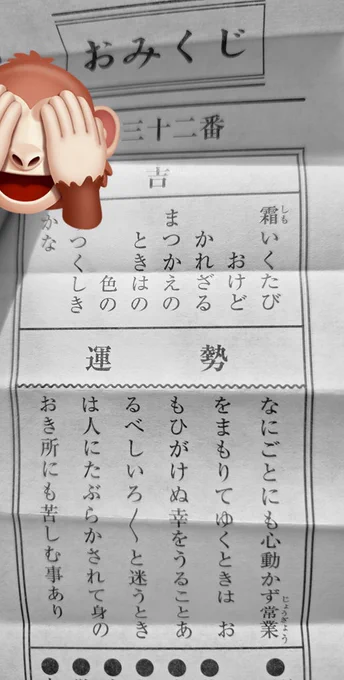 おみくじ
三十二番
吉
霜いくたび
しも
おけど
かれざる
まつかえの
ときはの
色の
つくしき
かな
運勢
なにごとにも心動かず常業
じょうぎょう
をまもりてゆくときは お
もひがけぬ幸をうることあ
るべしいろ〱と迷うとき
は人にたぶらかされて身の
おき所にも苦しむ事あり